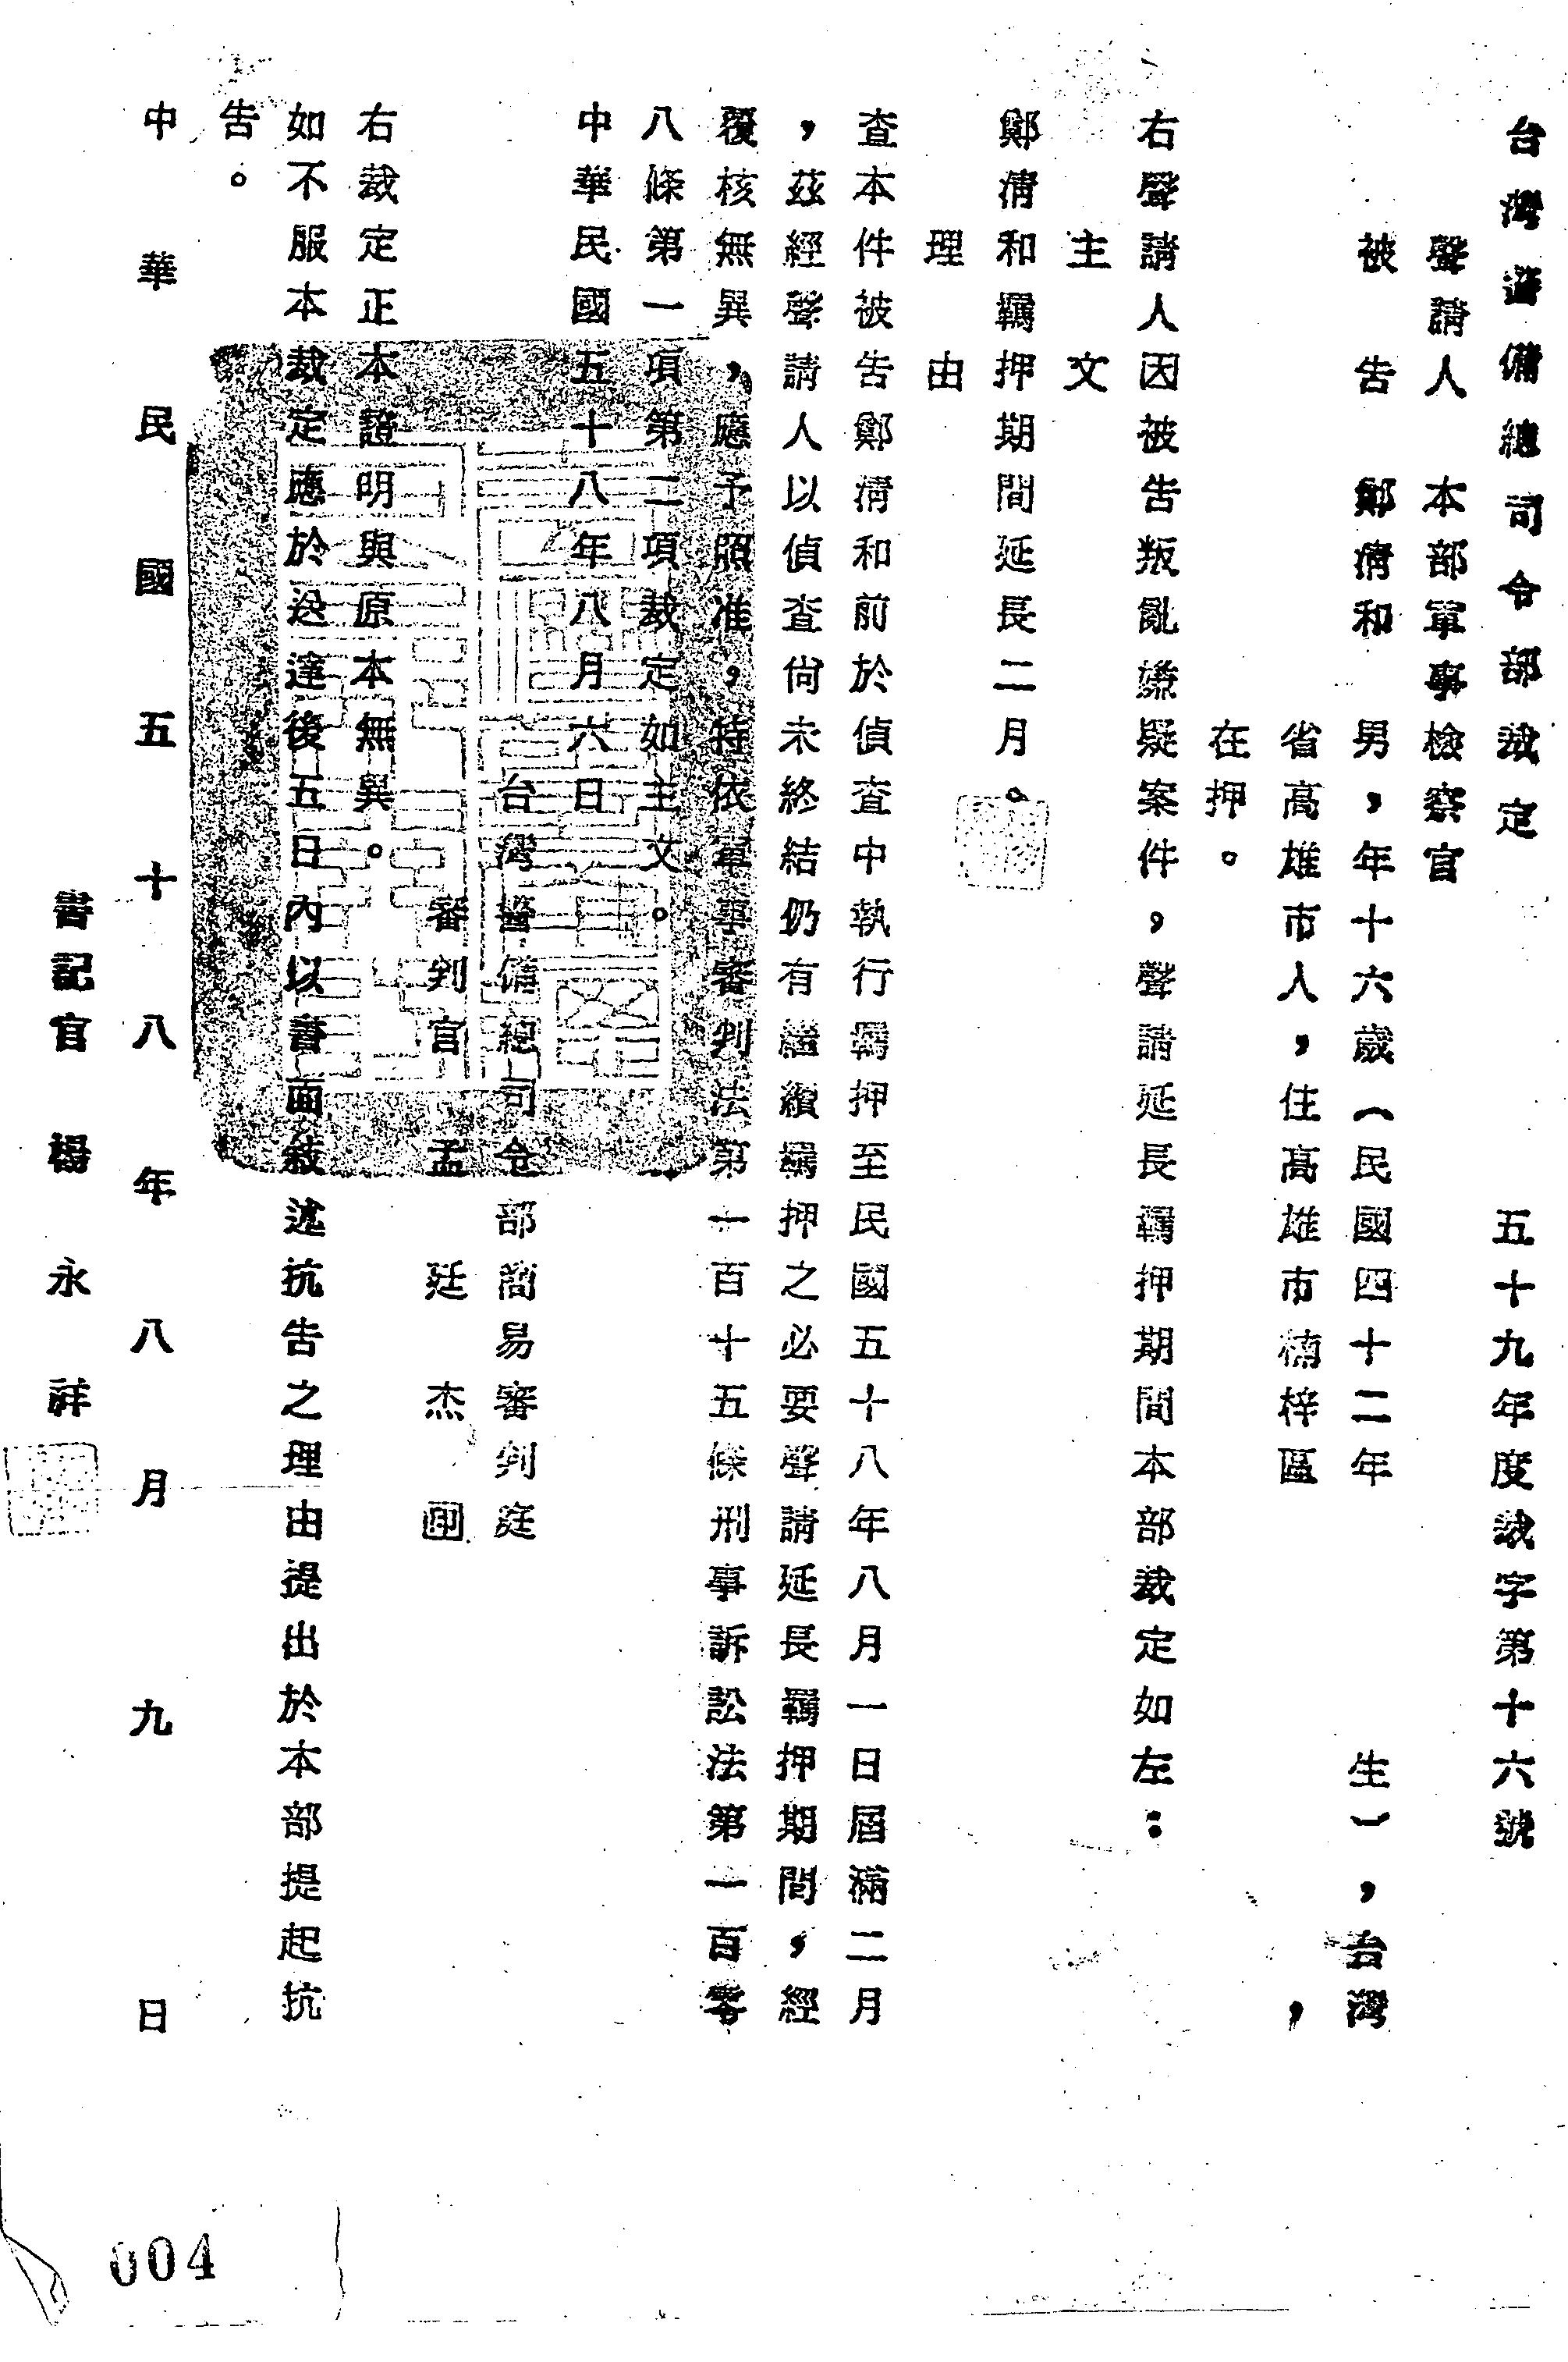 台灣警備總司令部裁定　五十九年度裁字第十六號
聲請人　本部軍事檢察官
被告　鄭清和　男，年十六歲（民國四十二年　生），台灣
省高雄市人，住高雄市楠梓區　，
在押。
右聲請人因被告叛亂嫌疑案件，聲請延長羈押期間本部裁定如左：
主文
鄭清和羈押期間延長二月。
理由
查本件被告鄭清和前於偵查中執行羈押至民國五十八年八月一日屆滿二月
，茲經聲請人以偵查尚未終結仍有繼續羈押之必要聲請延長羈押期間，經
覆核無異，應予照准，特依軍事審判法第一百十五條刑事訴訟法第一百零
八條第一項第二項裁定如主文。
中華民國五十八年八月六日
台灣警備總司令部簡易審判庭
審判官　孟廷杰　印
右裁定正本證明與原本無異。
如不服本裁定應於送達後五日內以書面敍述抗告之理由提出於本部提起抗
告。
中華民國五十八年八月九日
書記官　楊永祥
004